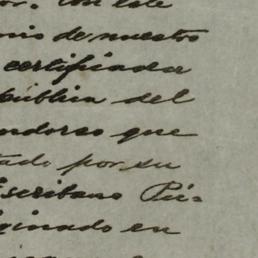 con este
de nuestros
certificada
del
endorso que
tado por su
scribano Pú-
ginado en